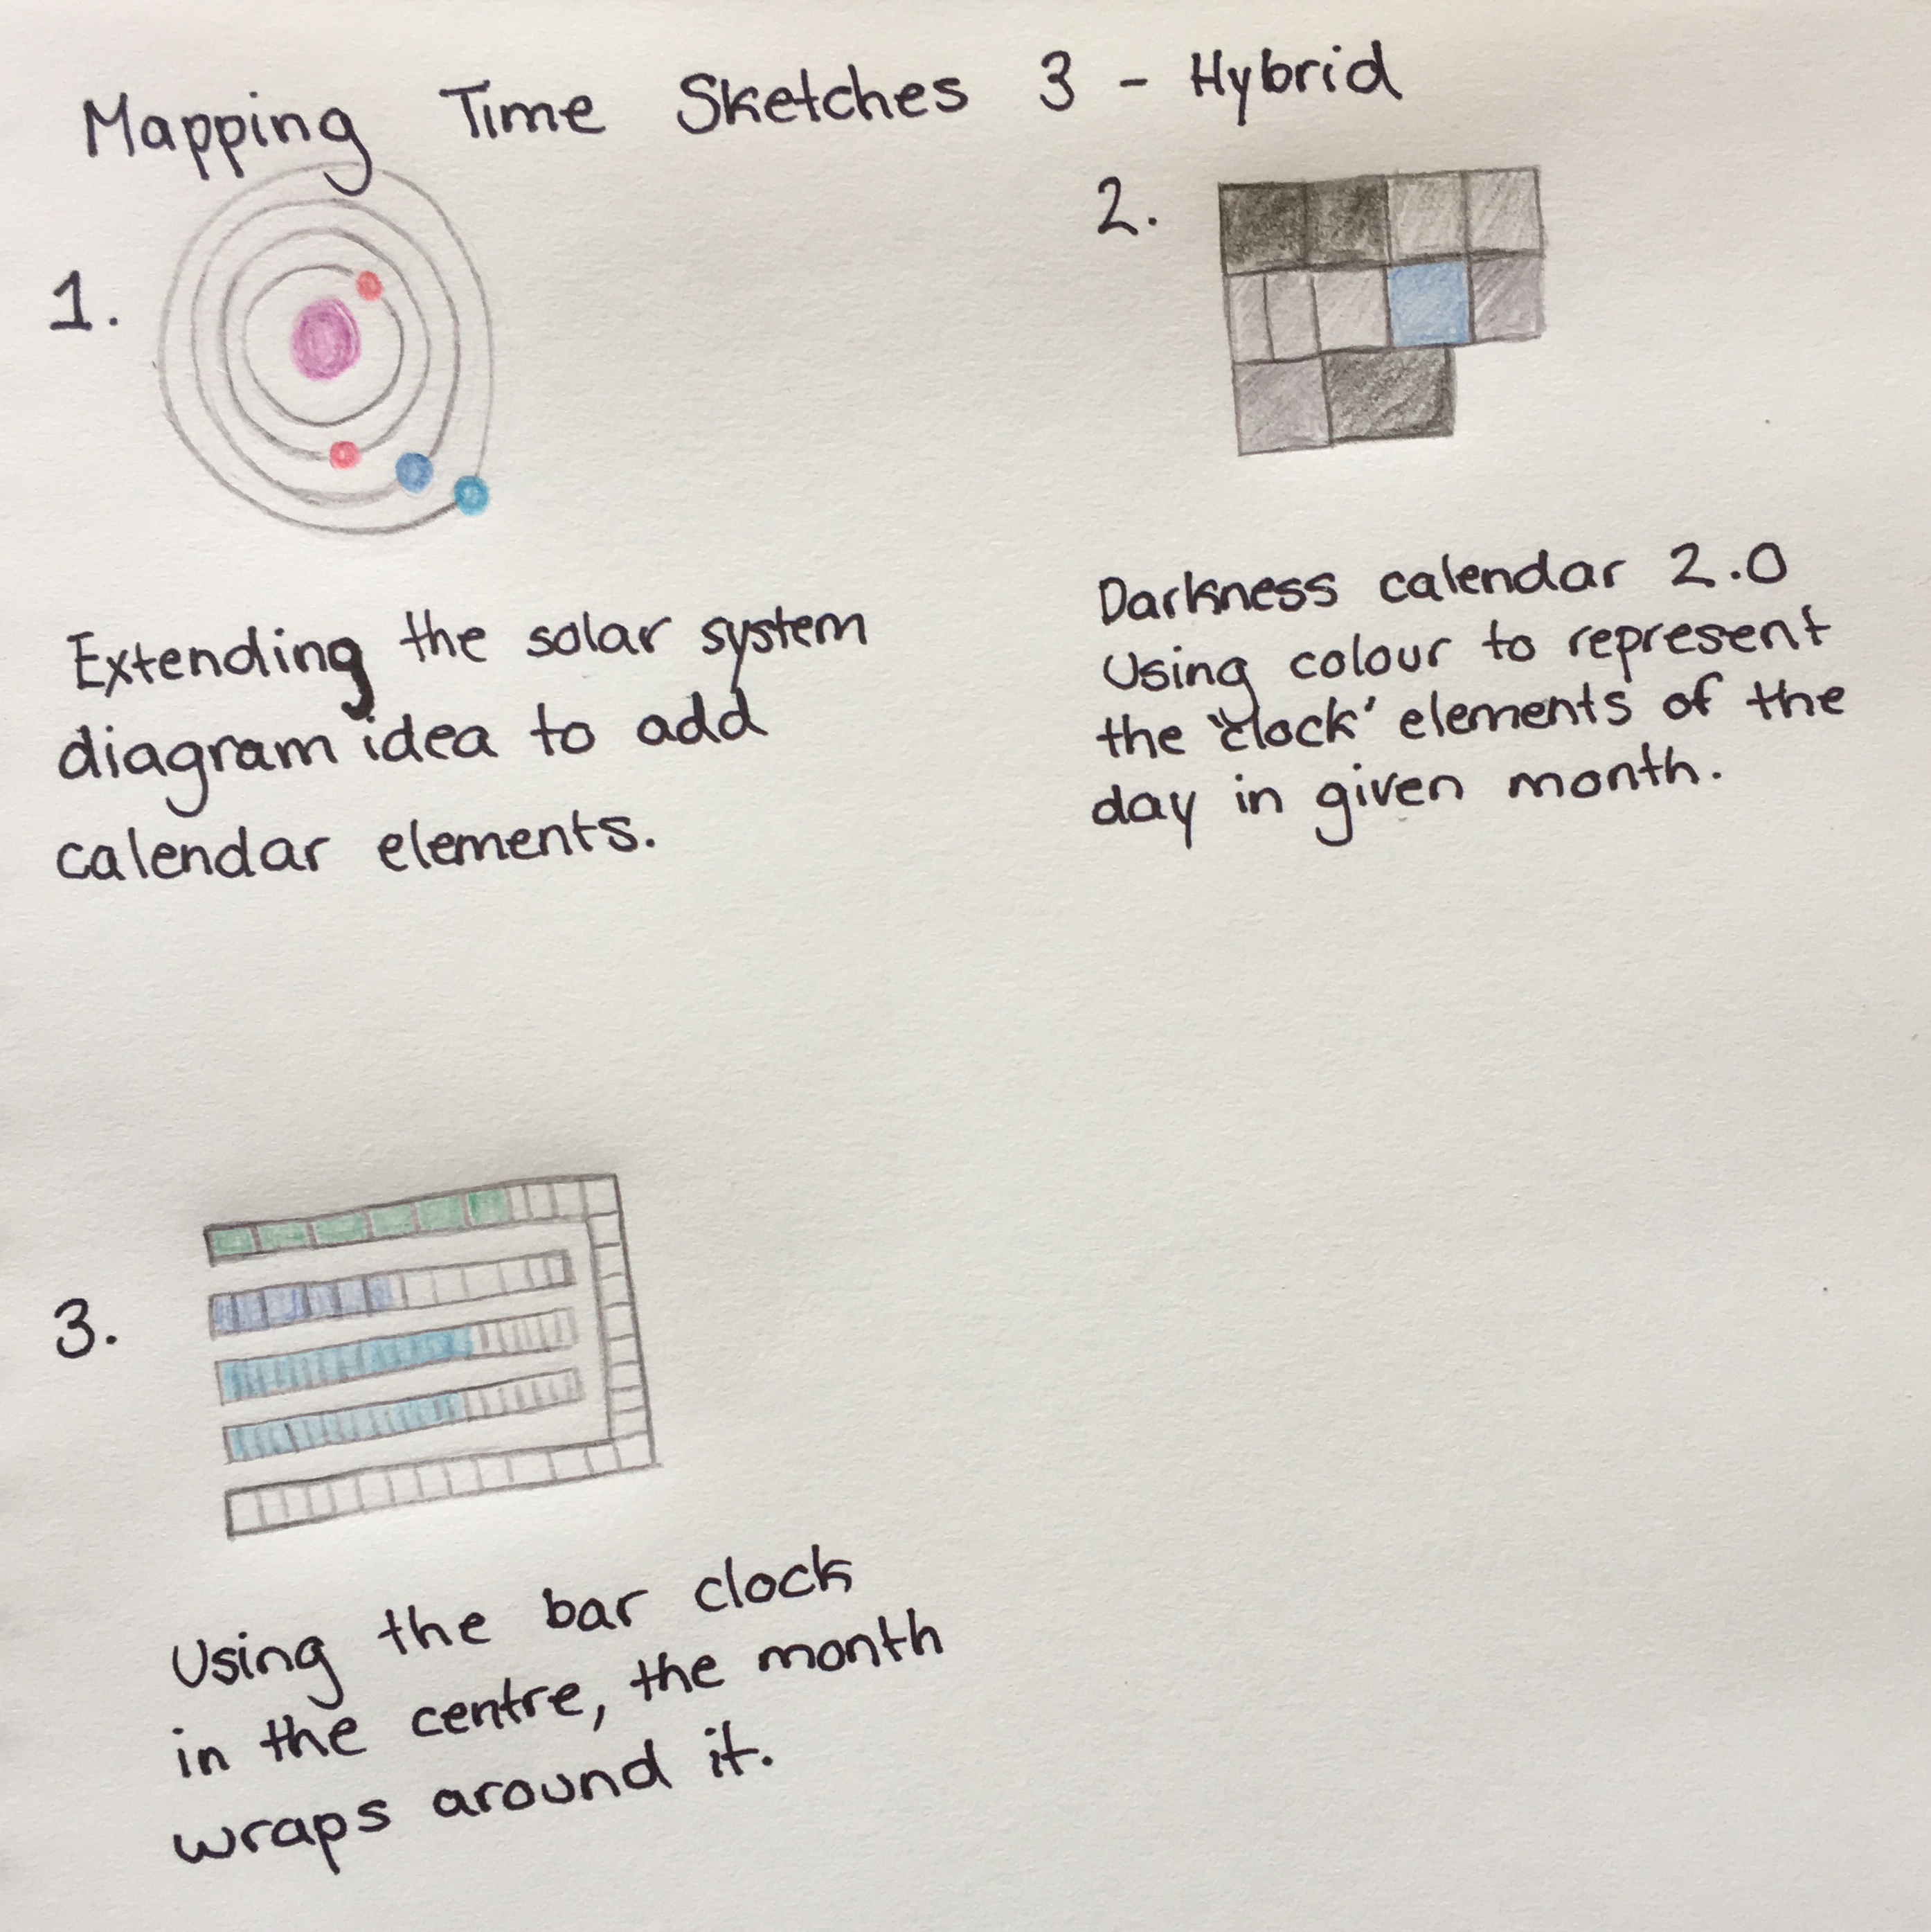 Mapping Time Sketches 3 - Hybrid
1.
Extending the solar system
diagram idea to add
calendar elements.
2.
Darkness calendar 2.0
Using colour to represent
the 'clock' elements of the
day in given month.
3.
Using the bar clock
in the centre, the month
wraps around it.